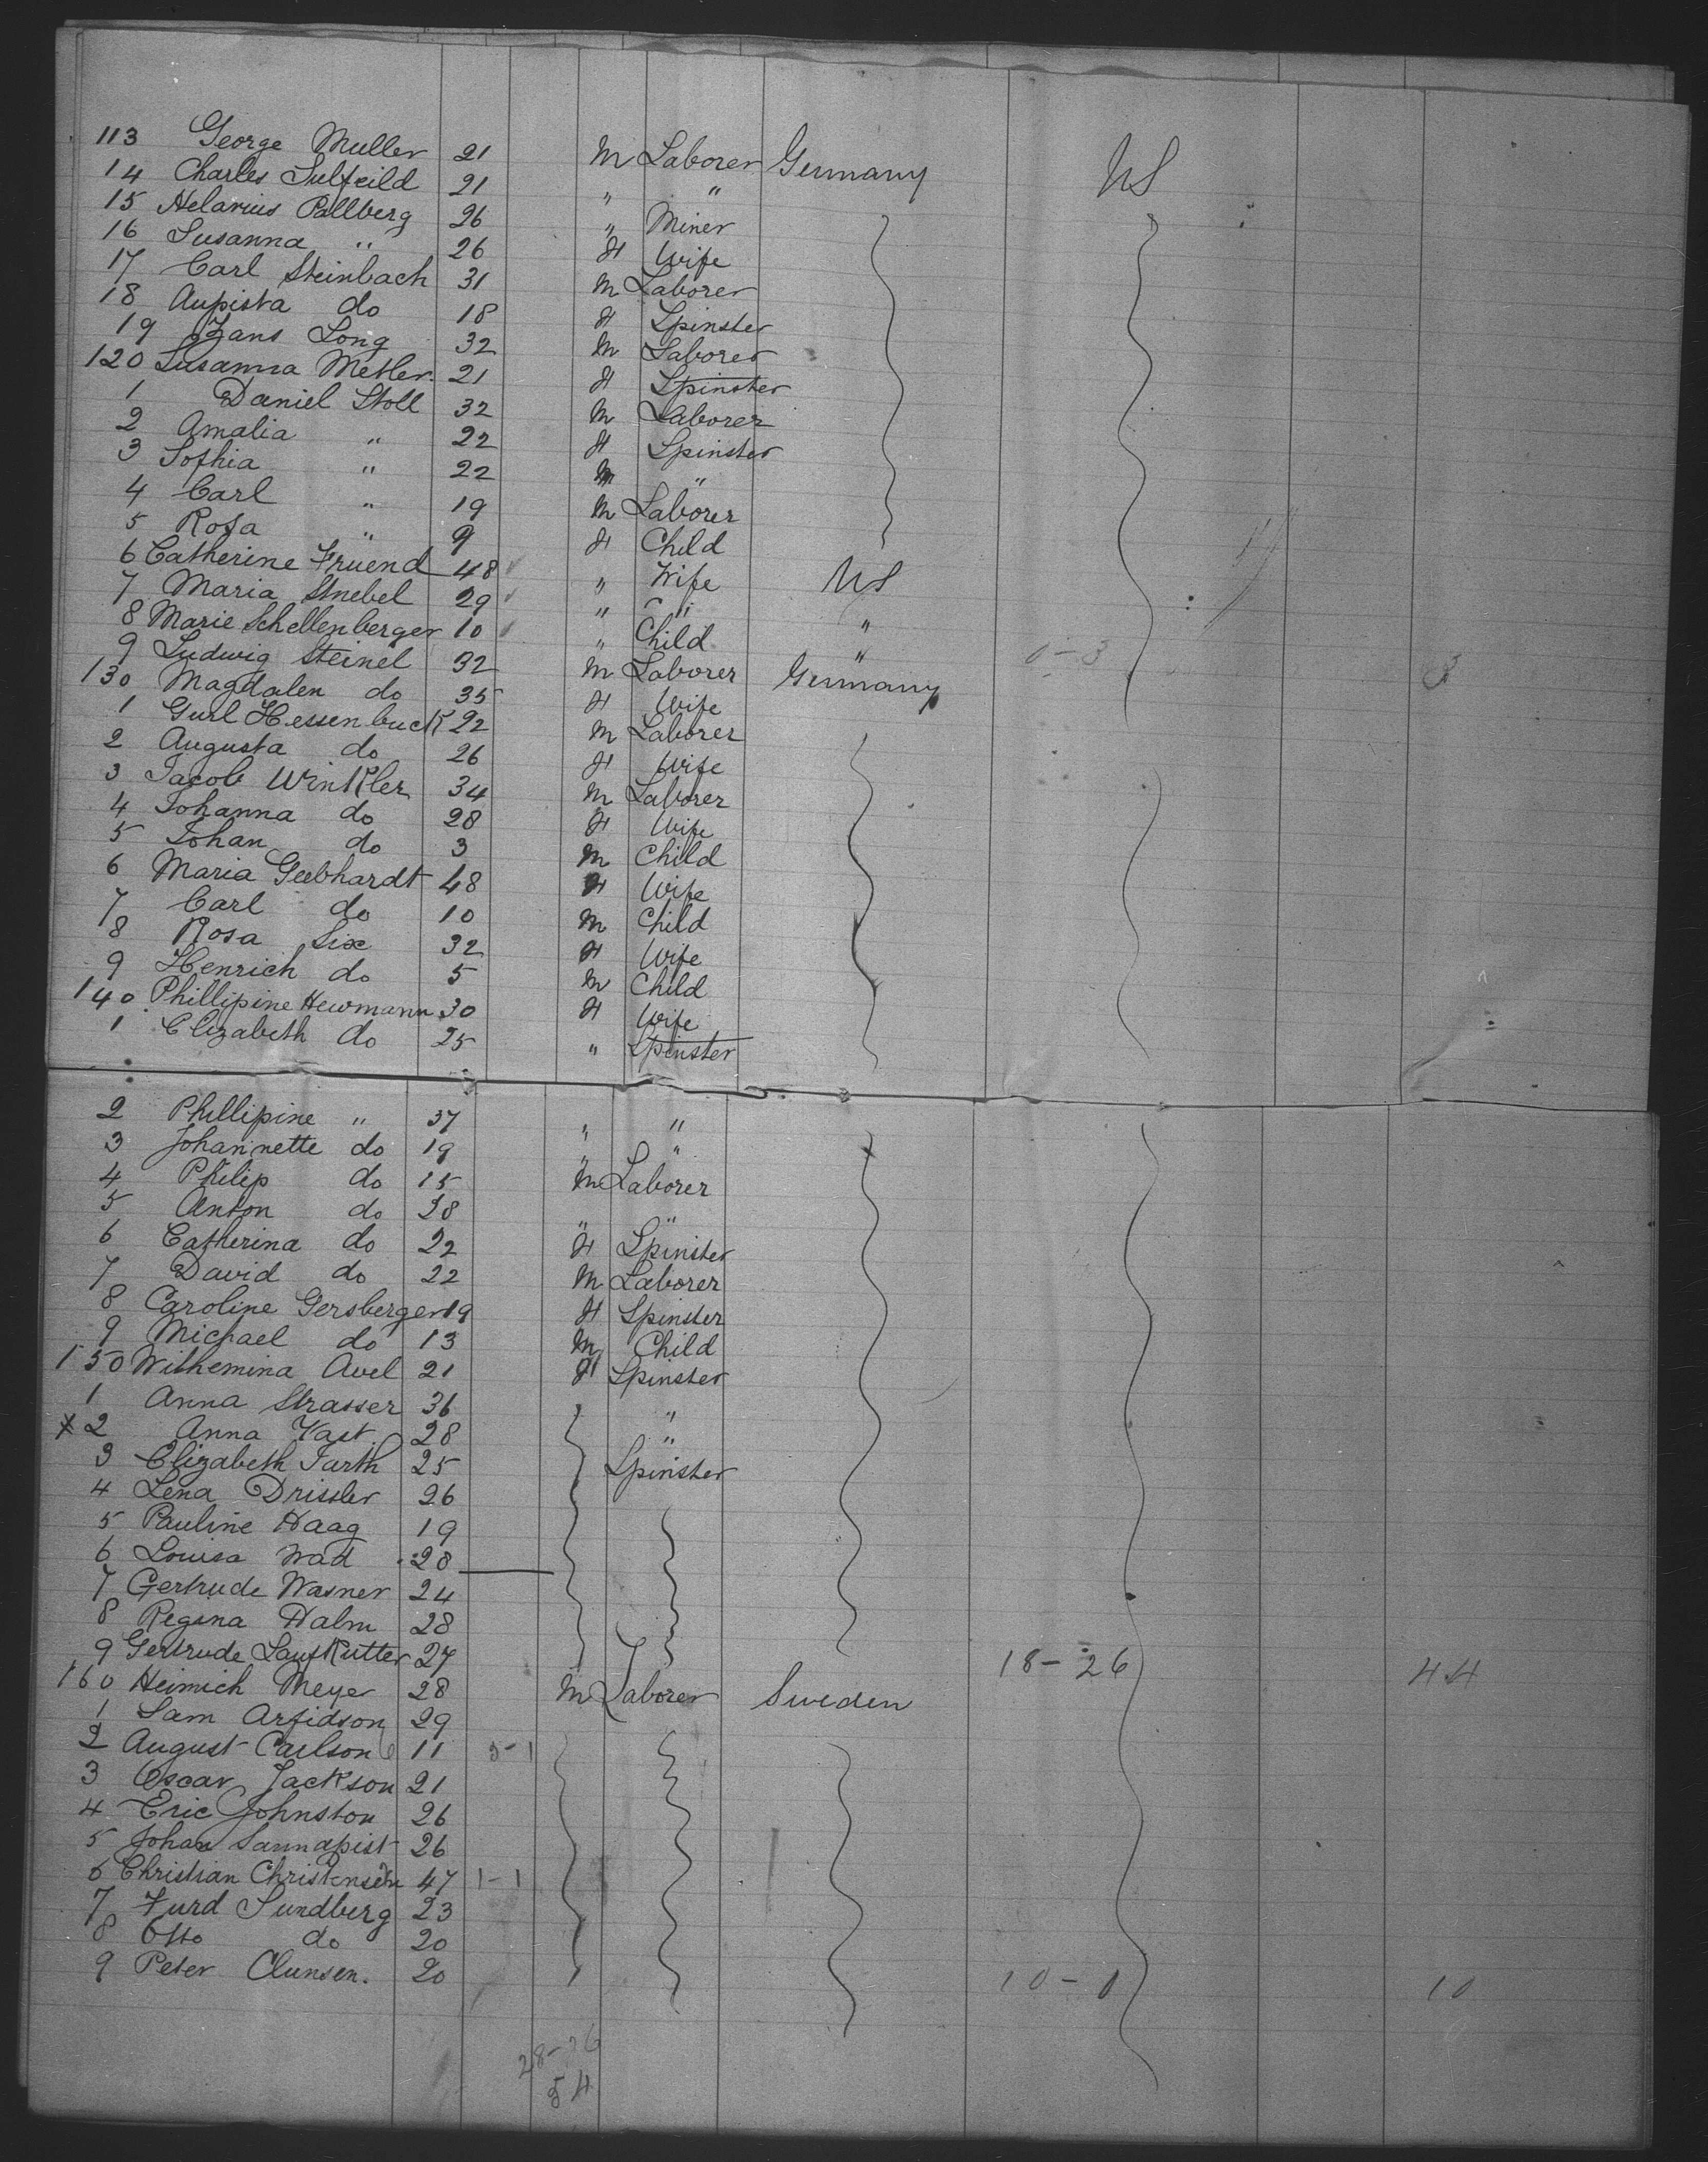 113 George Muller 21 M Laborer Germany US
14 Charles Sulfeild 21 " "
15 Helarius Pallberg 26 " Miner
16 Susanna " 26 F Wife
17 Carl Steinbach 31 M Laborer
18 Aupista do 18 F Spinster
19 Zans Long 32 M Laborer
120 Susanna Metler 21 F Spinster
1 Daniel Stoll 32 M Laborer
2 Amalia " 22 F Spinster
3 Sophia " 22 M "
4 Carl " 19 M Laborer
5 Rosa " 9 F Child
6 Catherine Fruend 48 " Wife US
7 Maria Strebel 29 " " "
8 Marie Schellenberger 10 " Child "
9 Ludwig Steinel 32 M Laborer Germany 0-3 3
130 Magdalen do 35 F Wife
1 Gurl Hessenbuck 22 M Laborer
2 Augusta do 26 F Wife
3 Jacob Winkler 34 M Laborer
4 Johanna do 28 F Wife
5 Johan do 3 M Child
6 Maria Geebhardt 48 F Wife
7 Carl do 10 M Child
8 Rosa Six 32 F Wife
9 Henrich do 5 M Child
140 Phillipine Hewmann 30 F Wife
1 Elizabeth do 25 " Spinster
2 Phillipine " 37 " "
3 Johannette do 19 " "
4 Philip do 15 M Laborer
5 Anton do 28 " "
6 Catherina do 22 F Spinster
7 David do 22 M Laborer
8 Caroline Gersberger 19 F Spinster
9 Michael do 13 M Child
150 Wilhemina Avel 21 F Spinster
1 Anna Strasser 36 "
x 2 Anna Vast 28 "
3 Elizabeth Farth 25 Spinster
4 Lena Drissler 26
5 Pauline Haag 19
6 Louisa Wad 28
7 Gertrude Wasner 24
8 Regina Halm 28
9 Gertrude Laufkutter 27 18-26 44
160 Heinrich Meyer 28 M Laborer Sweden
1 Sam Arfidson 29
2 August Carlson 11 5-1
3 Oscar Jackson 21
4 Eric Johnston 26
5 Johan Sannapist 26
6 Christian Christensen 47 1-1
7 Furd Sundberg 23
8 Otto do 20
9 Peter Clunsen. 20 10-0 10
28-26
54